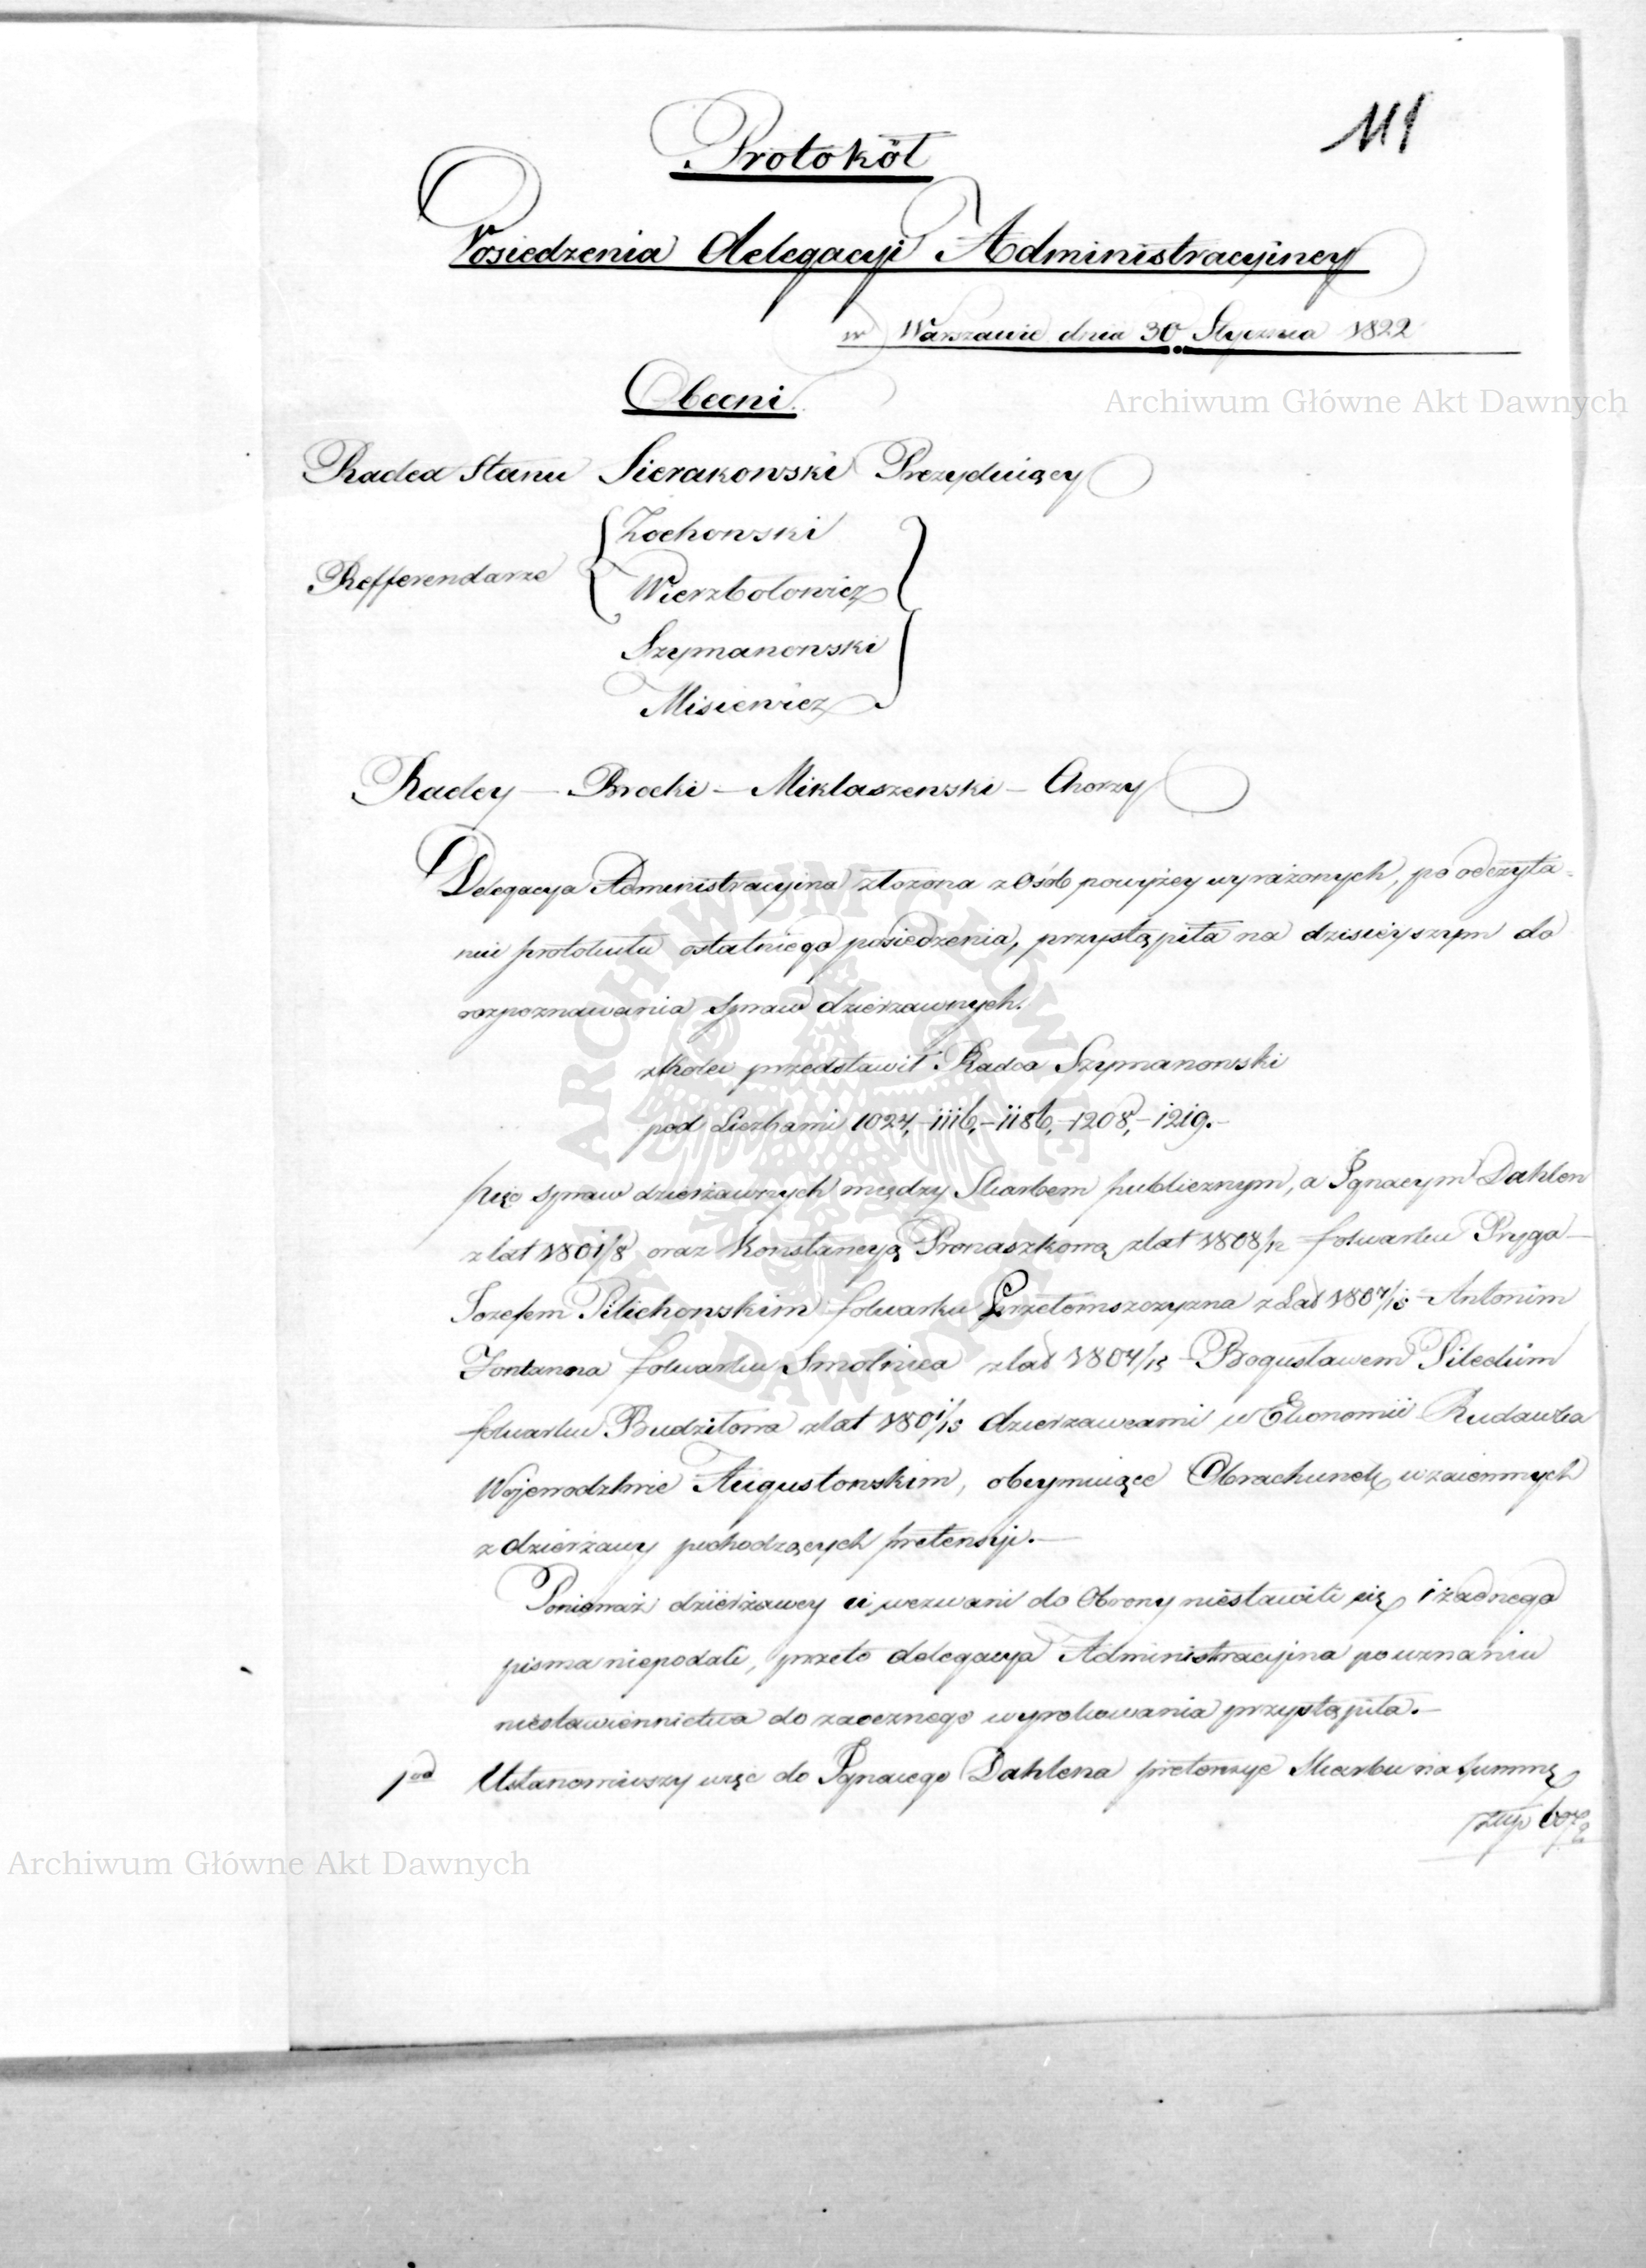 111
Protokół
Posiedzenia delegacyi Administracyiney
w Warszawie dnia 30 Stycznia 1822
Obecni
Archiwum Główne Akt Dawnych
Radca Stanu Sierakowski Prezyduiący
Zochowski
Refferendarze
Wierzbołowicz
Szymanowski
Misiewicz
Radcy – Brocki – Miklaszewski – Chorzy
Delegacya Administracyina złożona z Osób powyżey wyrażonych, po odczyta-
niu protokułu ostatniego posiedzenia, przystąpiła na dzisieyszym do
rozpoznawania spraw dzierżawnych.
z kolei przedstawił Radca Szymanowski
pod Liczbami 1024, – 1116, – 1186, – 1208, – 1219. –
pięć spraw dzierżawnych między Skarbem publicznym, a Ignacym Dahlen
z lat 1801/8 oraz Konstancyą Pronaszkową z lat 1808/12 folwarku Pryga –
Jozefem Pilichowskim folwarku z Lat 1807/15 – Antonim
Fontanna folwarku Smolnica z lat 1804/15 – Bogusławem Pileckim
folwarku Budziłowa z lat 1801/15 dzierzawcami w Ekonomii Rudawka
Wojewodztwie Augustowskim, obeymuiące Obrachunek wzaiemnych
z dzierżawy pochodzących pretensyi. –
Ponieważ dzierżawcy ci wezwani do Obrony niestawili się i żadnego
pisma niepodali, przeto delegacya Administracyina po uznaniu
niestawiennictwa do zaocznego wyrokowania przystąpiła. –
1od Ustanowiwszy więc do Ignacego Dahlena pretensye Skarbu na Summę
złłp
Archiwum Główne Akt Dawnych
ARCHIWUM GŁÓWNE AKT DAWNYCH